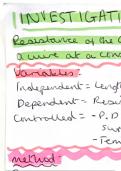 INVESTIGAT
Resistance of the
a wire at a con
Variables:
Independent = Leng
Dependent = Resi
Controlled = - P.D
Su
- Te
method: